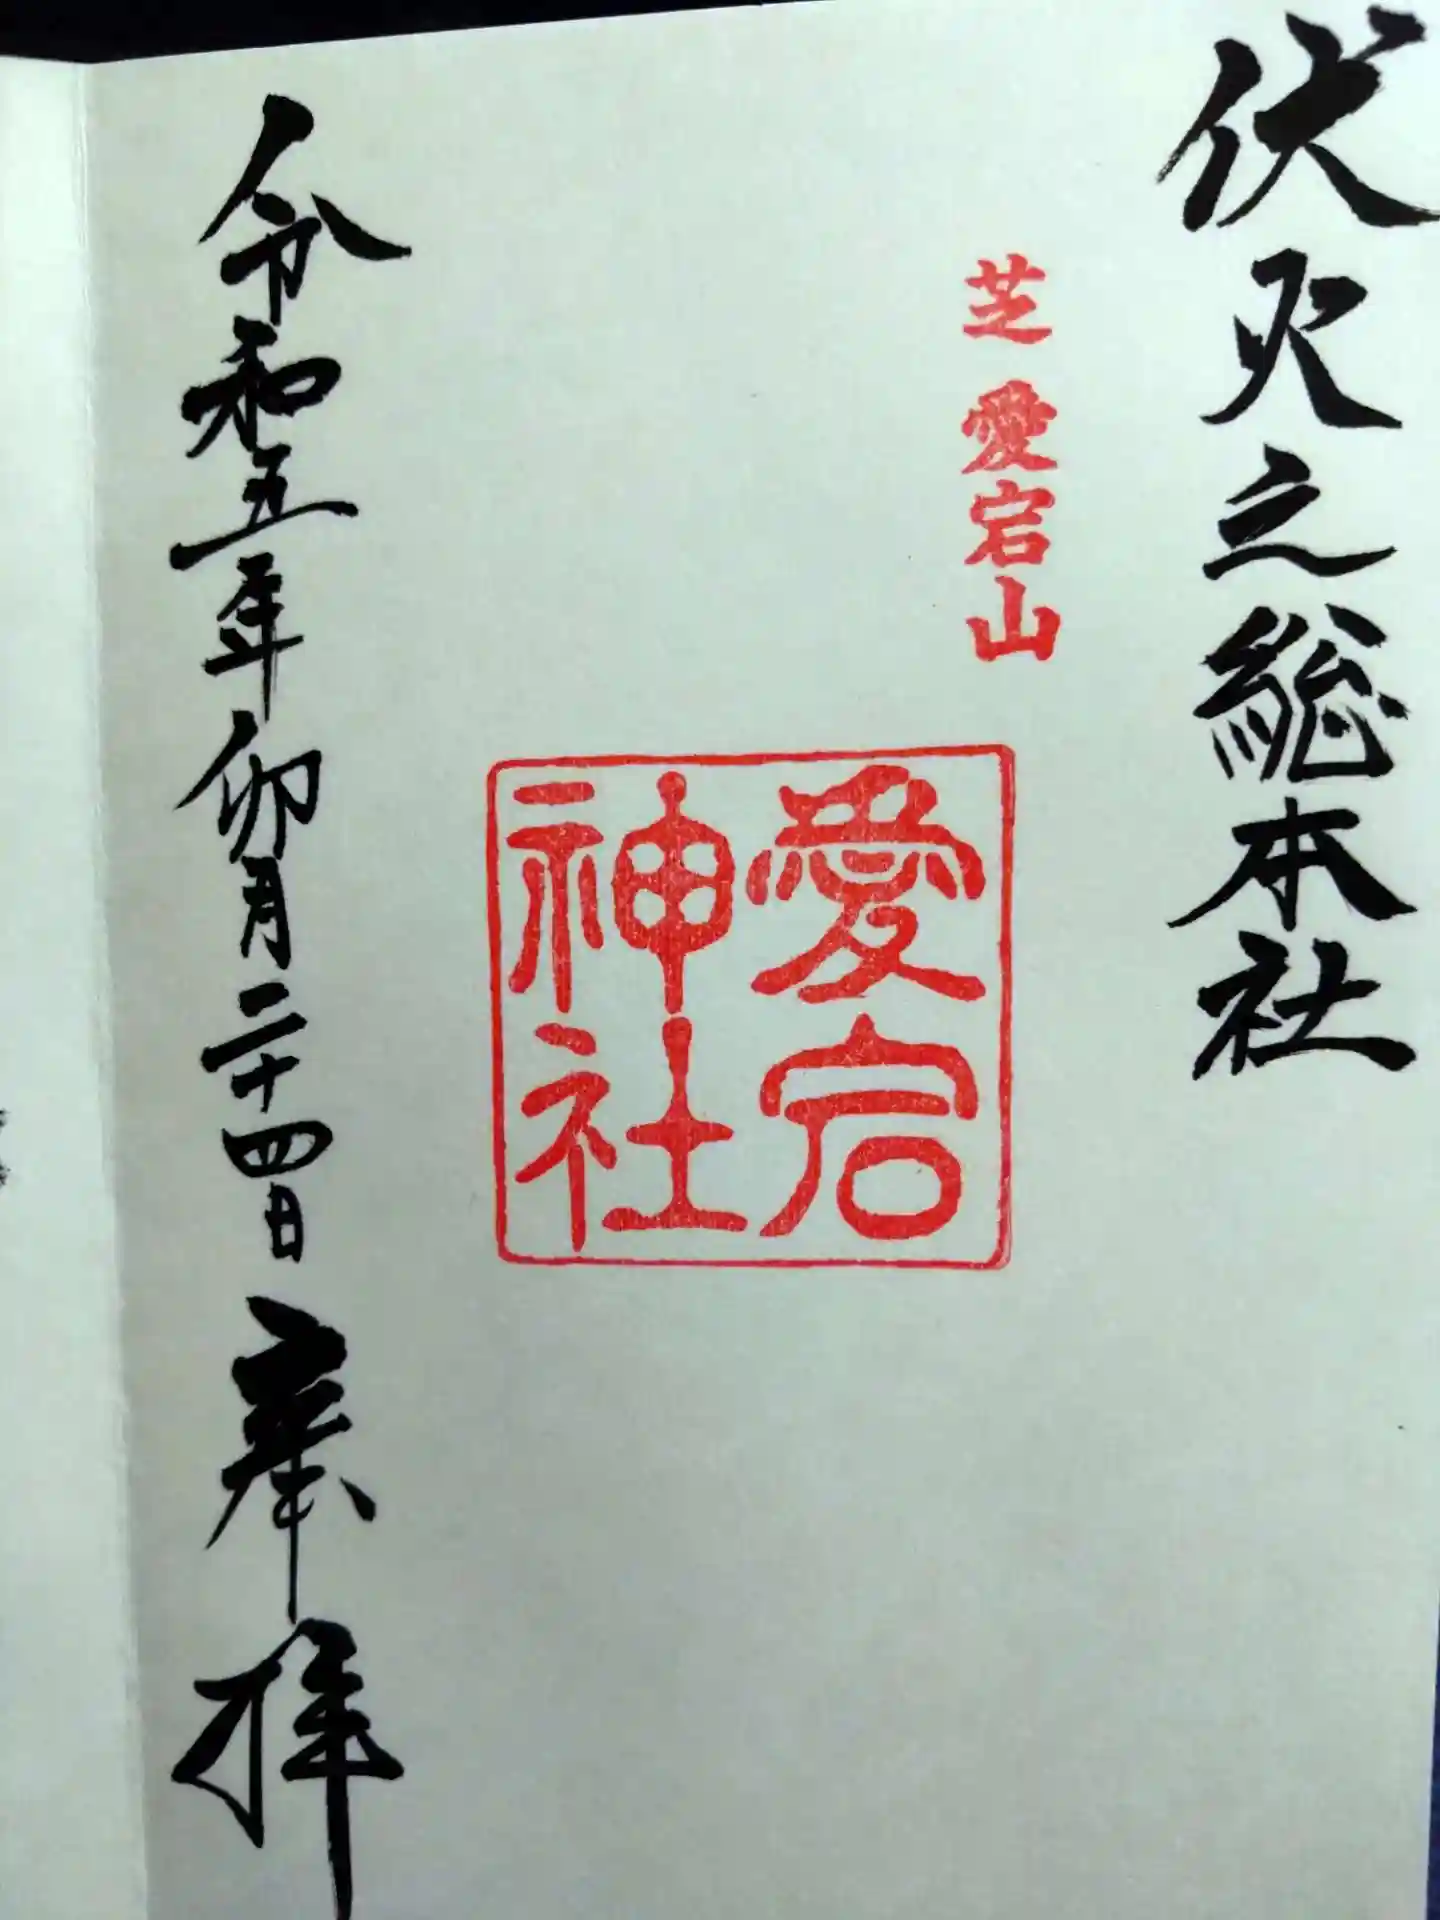 伏火之総本社
芝 愛宕山
愛宕
神社
令和五年卯月二十四日 奉拝